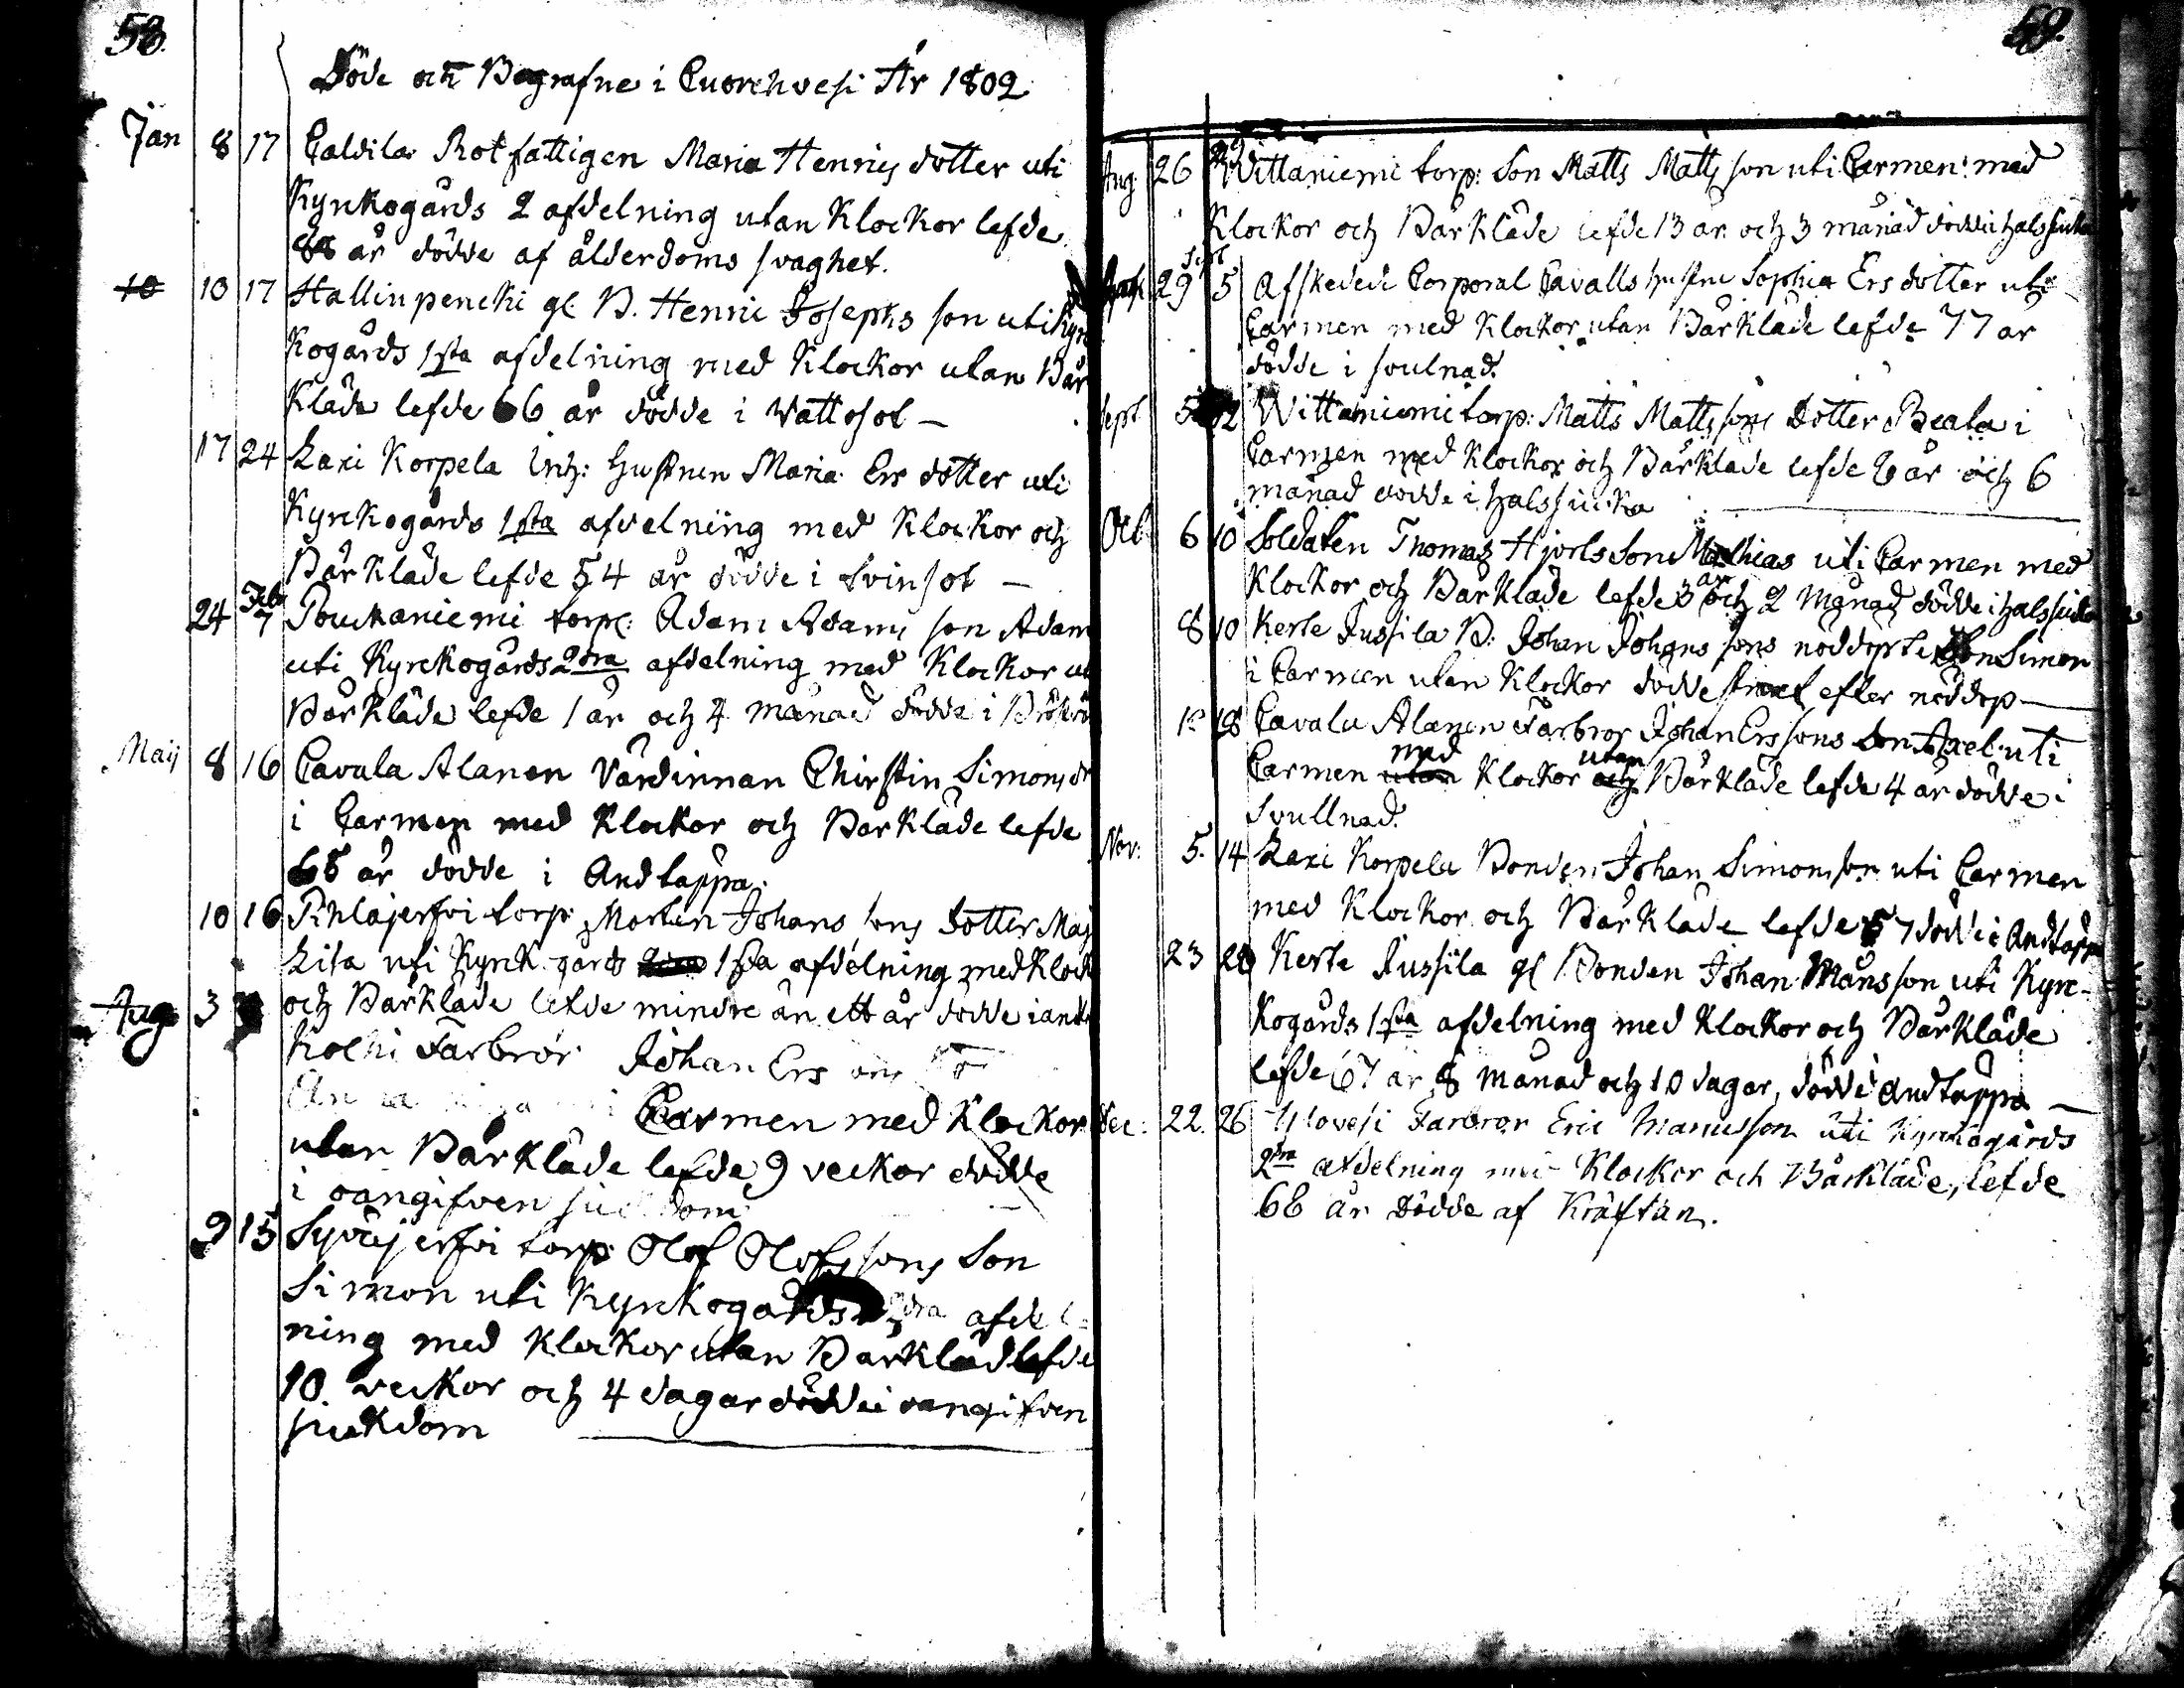 58.
Döde och Begrafne i Cuorehvesi År 1802
Jan 8 17 Caldila Rotfattigen Maria Henrics dotter uti
Kyrkogårds 2 afdelning utan Klockor lefde
88 år dödde af ålderdoms svaghet.
10 10 17 Hallinpencki gl B. Henric Josephs son uti Kyr
kogårds 1sta afdelning med Klockor utan Bår
Kläde lefde 66 år dödde i Wattosot —
17 24 Laxi Korpela Inh: Hustrun Maria Ers dotter uti
Kyrckogårds 1sta afdelning med Klockor och
Bårkläde lefde 54 år dödde i tvinsot —
24 Feb 7 Pouckaniemi torp: Adam Adams son Adam
uti Kyrckogårds 2dra afdelning med Klockor
Bårkläde lefde 1 år och 4 månad dödde i
Maij 8 16 Cavala Alanen Värdinnan Chirstin Simons dr
i Carmen med Klockor och Barkläde lefde
65 år dödde i Andtäppa.
10 16 Pihlajerfvi torp: Morten Johans sons dotter Maj
Lisa uti Kyrk gårds 1sta afdelning med Klock
och Bårkläde lefde mindre än ett år dödde i
Aug 3 Kolhi Farbror Johan Ers
Carmen med Klockor
utan Bårkläde lefde 9 veckor dödde
i oangifven siukdom
9 15 Syväjerfvi torp: Olof Olofssons Son
Simon uti Kyrckogårds 2dra afdel=
ning med Klockor utan Bårkläd lefde
10 veckor och 4 dagar dödde i oangifven
siukdom
59.
Aug 26 Wittaniemi torp: Son Matts Matts son uti Carmen med
Klockor och Bårkläde lefde 13 år och 3 månad dödde i halssiuka
29 Sept 5 Afskedede Corporal Cavalls hustru Sophia Ers dotter uti
Carmen med Klockor utan Bårkläde lefde 77 år
dödde i svulnad.
Sept 5 12 Wittaniemi torp: Matts Mattssons Dotter Beata i
Carmen med Klockor och Bårkläde lefde 6 år och 6
månad dödde i halssiucka
Oct 6 10 Soldaten Thomas Hjorts Son Mathias uti Carmen med
Klockor och Bårkläde lefde 3 år och 2 Månad dödde i halssiuka
8 10 Kerte Jussila B: Johan Johans sons nöddöpte Son Simon
i Carmen utan Klockor dödde straxt efter nöddop —
18 Cavala Alanen Farbror Johan Ers sons Son Axel uti
Carmen utan med Klockor och utan Bårkläde lefde 4 år dödde i
Svullnad.
Nov: 5. 14 Laxi Korpela Bonden Johan Simons son uti Carmen
med Klockor och Bårkläde lefde 57 dödde i Andtäppa
23 28 Kerte Jussila gl Bonden Johan Månsson uti Kyrc-
kogårds 1sta afdelning med Klockor och Bårkläde
lefde 67 år 8 månad och 10 dagar, dödde i Andtäppa —
Dec: 22. 26 Ylövesi Farbror Eric Manusson uti Kyrckogårds
2dra afdelning med Klockor och Bårkläde, lefde
68 år dödde af Kräftan.